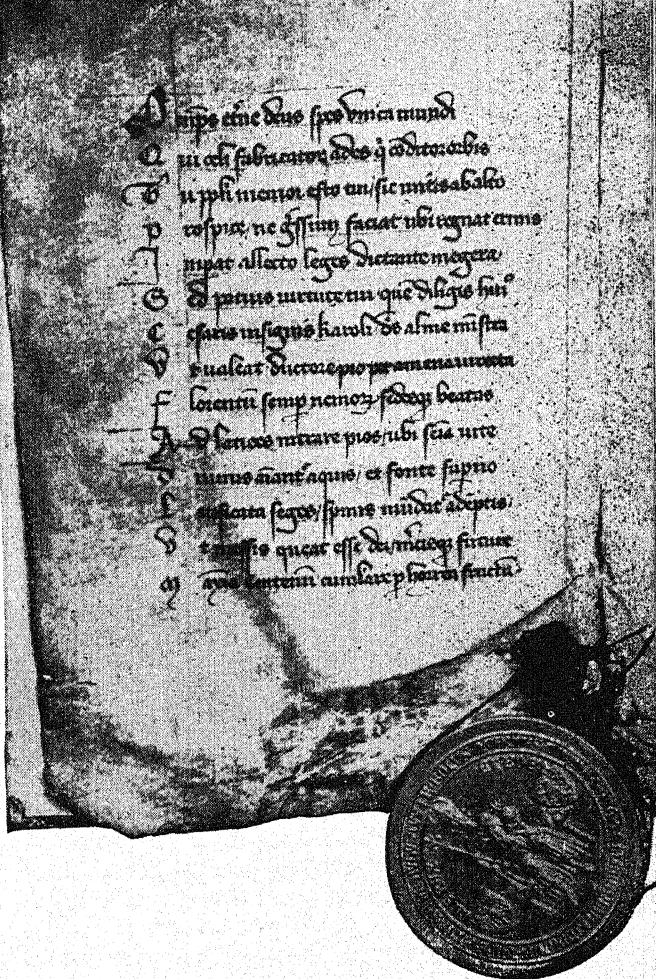 O mp̄s et̄ne deus spes vnica mundi
Q ui celi fabricator ades q̇ cōditor orbis
T u ppl̄i memor esto tui / sic mitis ab alto
P rospice, ne g̃ssum faciat ubi regnat erinis
I mpat allecto leges dictante megera.
S ed potius uirtute tui quē diligis huiꝰ
C esaris insignis karoli. ds̄ alme mīstra
V t ualeat ductore pio per amena uireta
F lorentū semp nemoꝝ sedesqꝫ beatas
A d latices intrare pios / ubi sēia uite
D iuinis aīant᷑ aquis / et fonte sup̄no
L etificata seges / spinis mūdat᷑ adēptis.
V t messis queat esse dei / m̄cisqꝫ future
M axīa centenū cumulare ꝑ horrea fructū.